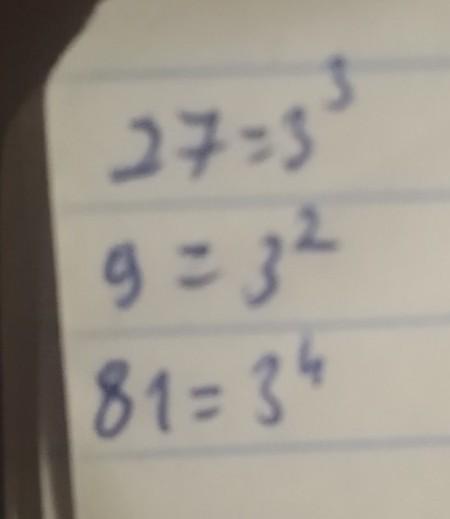 27=3³
9=3²
81=3⁴